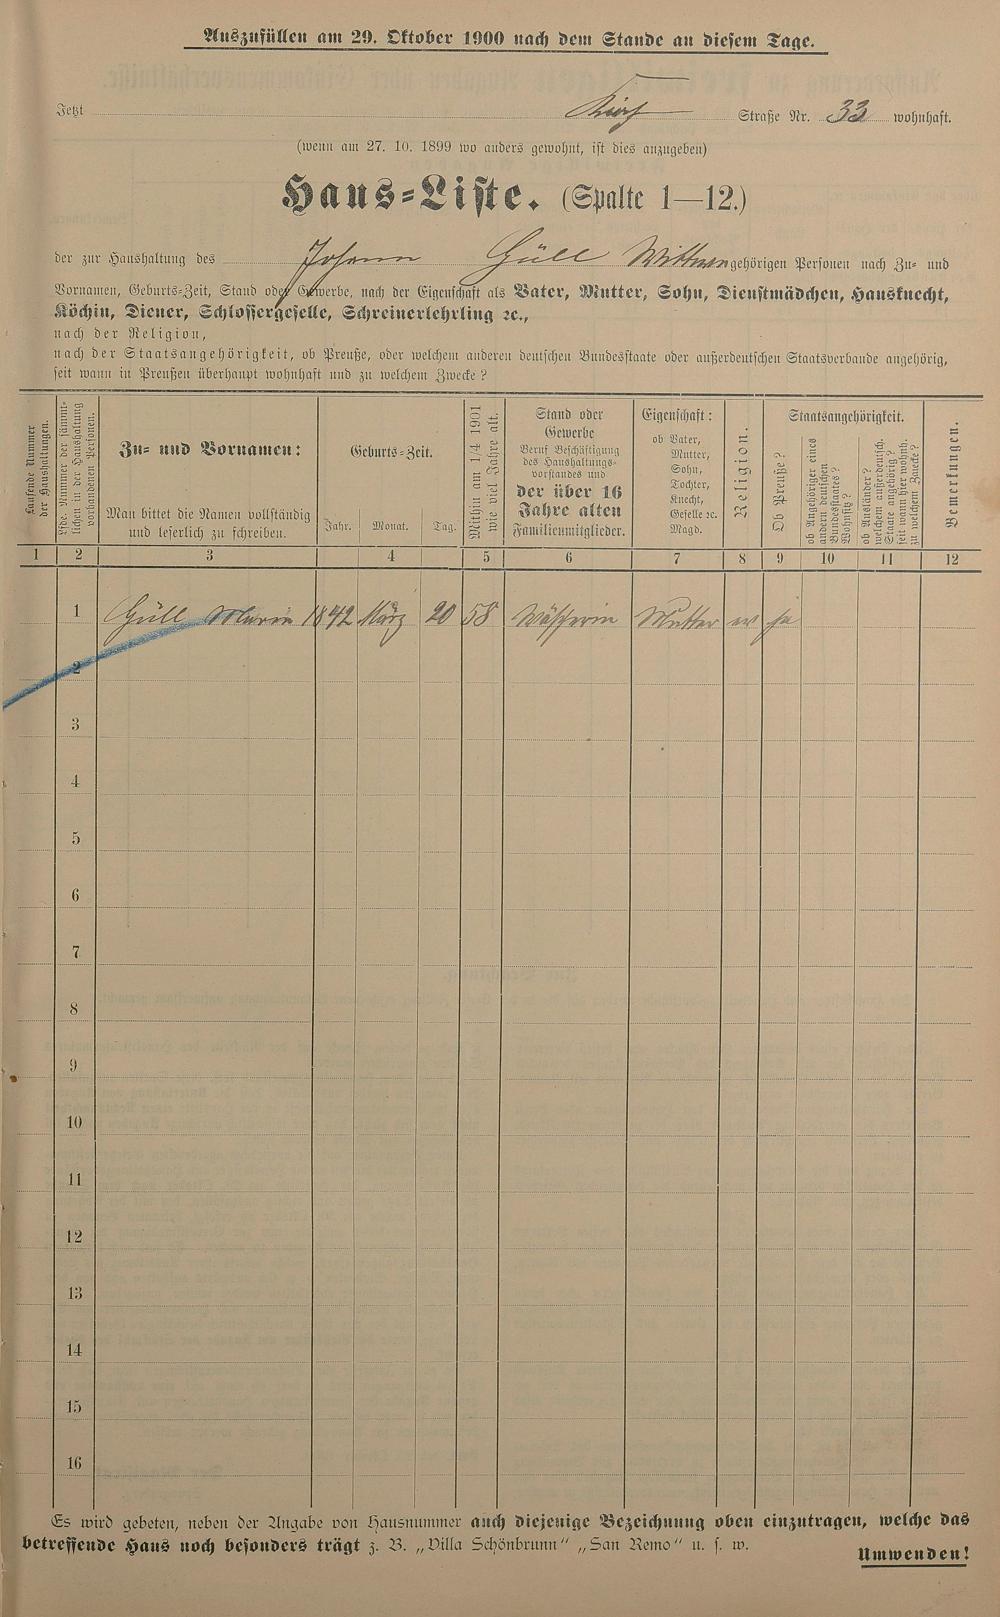 Auszufüllen am 29. Oktober 1900 nach dem Stande an diesem Tage.
Jetzt Kirch Straße Nr. 33 wohnhaft.
(wenn am 27. 10. 1899 wo anders gewohnt, ist dies anzugeben)
Haus=Liste. (Spalte 1—12.)
der zur Haushaltung des Johann Güll Wittwe gehörigen Personen nach Zu= und
Vornamen, Geburts=Zeit, Stand oder Gewerbe, nach der Eigenschaft als Vater, Mutter, Sohn, Dienstmädchen, Hausknecht,
Köchin, Diener, Schlossergeselle, Schreinerlehrling ꝛc.,
nach der Religion,
nach der Staatsangehörigkeit, ob Preuße, oder welchem anderen deutschen Bundesstaate oder außerdeutschen Staatsverbande angehörig,
seit wann in Preußen überhaupt wohnhaft und zu welchem Zwecke?
Laufende Nummer
der Haushaltungen.
Lfde. Nummer der sämmt=
lichen in der Haushaltung
vorhandenen Personen.
Zu= und Vornamen:
Man bittet die Namen vollständig
und leserlich zu schreiben.
Geburts=Zeit.
Jahr. Monat. Tag.
Mithin am 1/4 1901
wie viel Jahre alt.
Stand oder
Gewerbe
Beruf Beschäftigung
des Haushaltungs=
vorstandes und
der über 16
Jahre alten
Familienmitglieder.
Eigenschaft:
ob Vater,
Mutter,
Sohn,
Tochter,
Knecht,
Geselle ꝛc.
Magd.
Religion.
Staatsangehörigkeit.
Ob Preuße?
ob Angehöriger eines
andern deutschen
Bundesstaates?
Wohnsitz?
ob Ausländer?
welchem außerdeutsch.
Staate angehörig?
seit wann hier wohnh.
zu welchem Zwecke?
Bemerkungen.
1 2 3 4 5 6 7 8 9 10 11 12
1 Güll Maria 1842 März 20 58 Wäscherin Mutter ev ja
2
3
4
5
6
7
8
9
10
11
12
13
14
15
16
Es wird gebeten, neben der Angabe von Hausnummer auch diejenige Bezeichnung oben einzutragen, welche das
betreffende Haus noch besonders trägt z. B. „Villa Schönbrunn" „San Remo" u. s. w.
Umwenden!